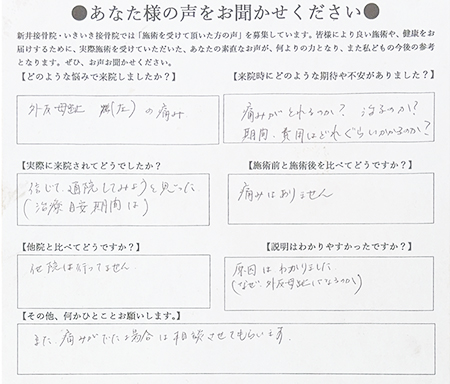 ●あなた様の声をお聞かせください●
新井接骨院・いきいき接骨院では「施術を受けて頂いた方の声」を募集しています。皆様により良い施術や、健康をお
届けするために、実際施術を受けていただいた、あなたの素直なお声が、何よりの力となり、また私どもの今後の参考
となります。ぜひ、お声お聞かせください。
【どのような悩みで来院しましたか?】
外反母趾 (左)の痛み
【来院時にどのような期待や不安がありましたか?】
痛みがとれるのか? 治るのか?
期間、費用はどれぐらいかかるのか?
【実際に来院されてどうでしたか?】
信じて、通院してみようと思った
(治療目安期間は)
【施術前と施術後を比べてどうですか?】
痛みはありません
【他院と比べてどうですか?】
他院は行ってません
【説明はわかりやすかったですか?】
原因はわかりました
(なぜ、外反母趾になるのか)
【その他、何かひとことお願いします。】
また痛みがでた場合は相談させてもらいます。